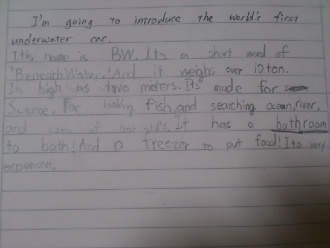 I'm going to introduce the world's first
underwater car.
It's name is BW. It's a short word of
"Beneath Water." And it weighs over 10 ton.
Its high is two meters. It's made for
Science. For looking fish and searching ocean, river,
and of It has a bathroom
to bath! And a freezer to put food! It's very
expensive.